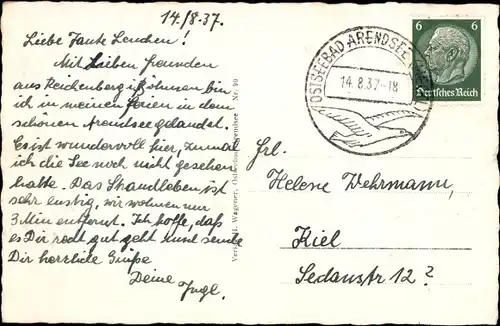 14./8.37.
Liebe Tante Lenchen!
Mit lieben Freunden
aus Reichenberg i/Böhmen bin
ich in meinen Ferien in dem
schönen Arendsee gelandet.
Es ist wundervoll hier, zumal
ich die See noch nicht gesehen
hatte. Das Strandleben ist
sehr lustig, wir wohnen nur
3 Min entfernt. Ich hoffe, daß
es Dir recht gut geht und sende
Dir herzliche Grüße
Deine
Inge.
Wagener, Ostseebad Arendsee Nr. 99
OSTSEEBAD ARENDSEE
14.8.37.-18
6 6
Deutsches Reich
Frl.
Helene Wehrmann,
Kiel
Sedanstr 12?